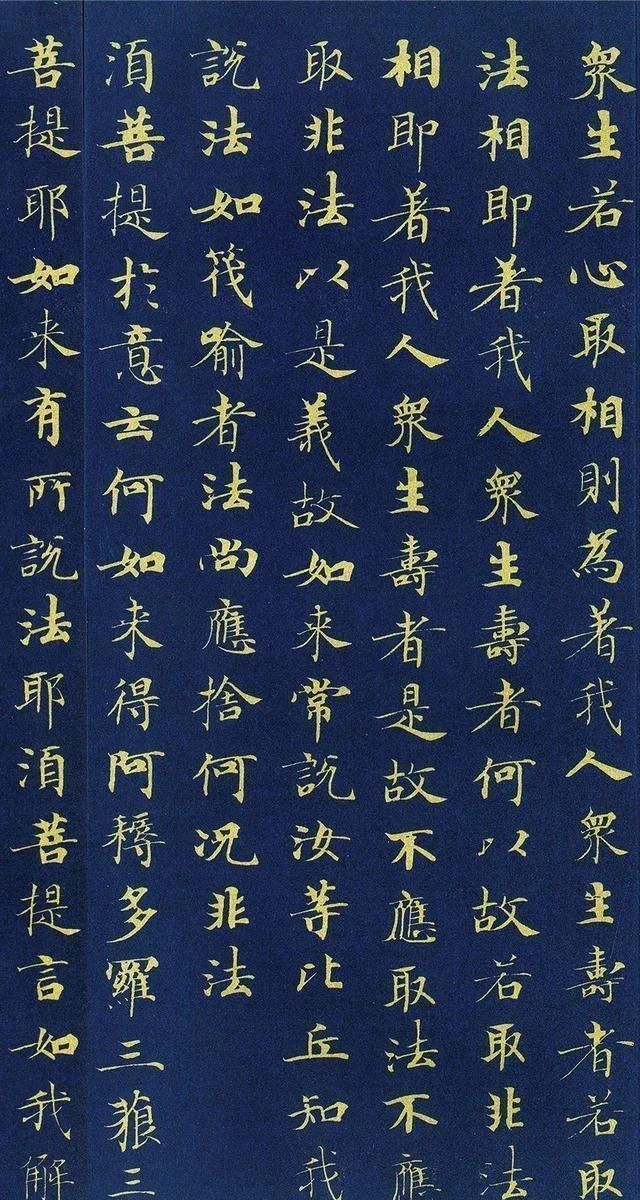 衆生若心取相則為著我人衆生壽者若取
法相即著我人衆生壽者何以故若取非法
相即著我人衆生壽者是故不應取法不應
取非法以是義故如来常說汝等比丘知我
說法如筏喻者法尚應捨何況非法
湏菩提於意云何如来得阿耨多羅三藐三
菩提耶如来有所說法耶湏菩提言如我解